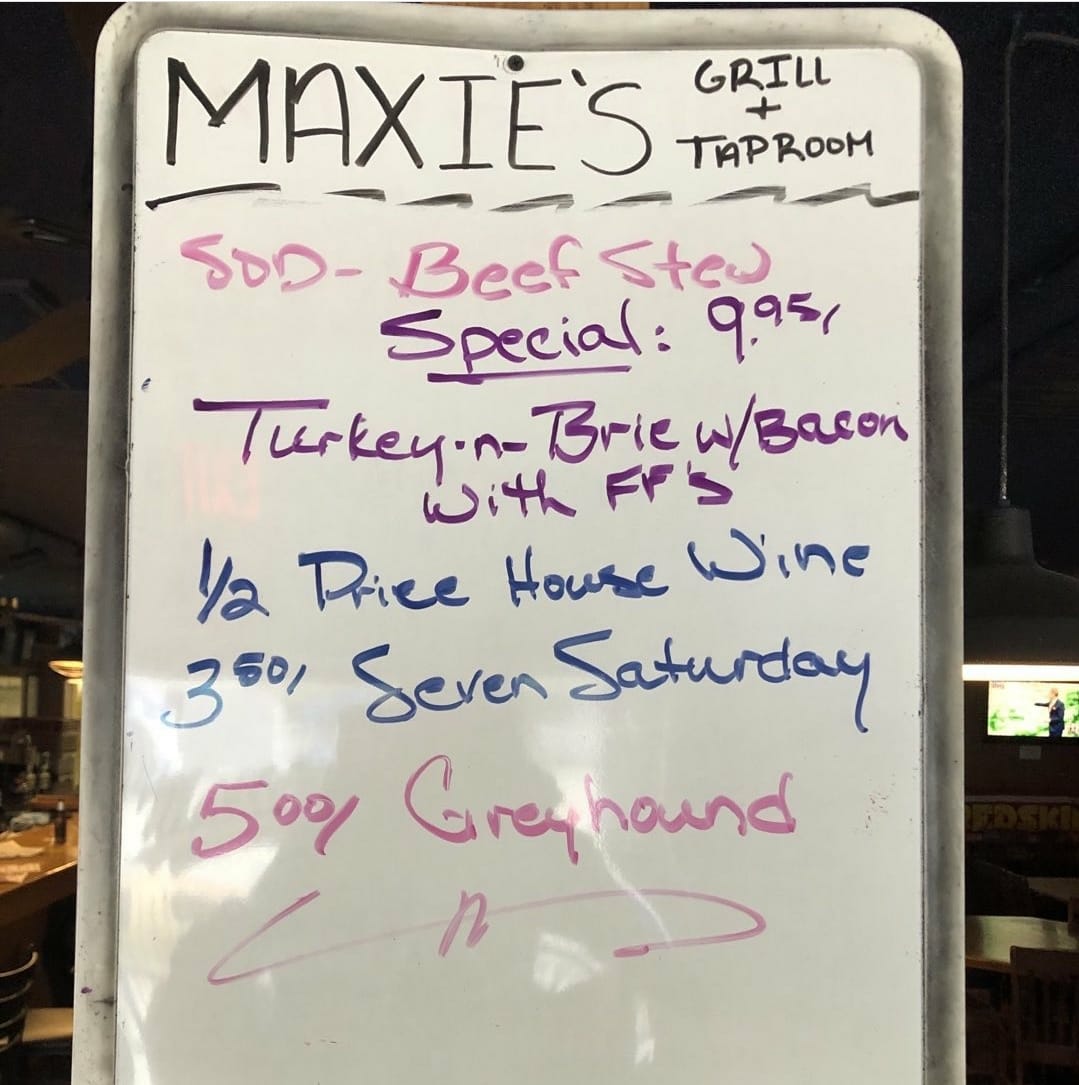 MAXIE'S GRILL
+
TAPROOM
SOD- Beef Stew
Special: 9.95/
Turkey-n-Brie w/Bacon
with FF's
1/2 Price House Wine
3 50/ Seven Saturday
5 00/ Greyhound